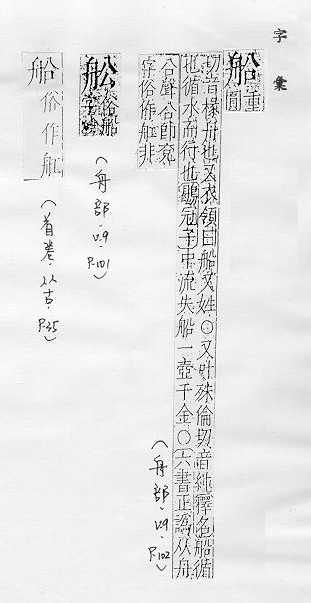 字彙
船重圓
切音椽舟也又衣領曰船又姓○又叶殊倫切音純釋名船循
也循水而行也鶡冠子中流失船一壺千金○六書正譌从舟
㕣聲㕣即兗
字俗作舡非
(舟部.U9.P.102)
舩俗船字
(舟部.U9.P.101)
船俗作舡
(首卷.从古.P.35)